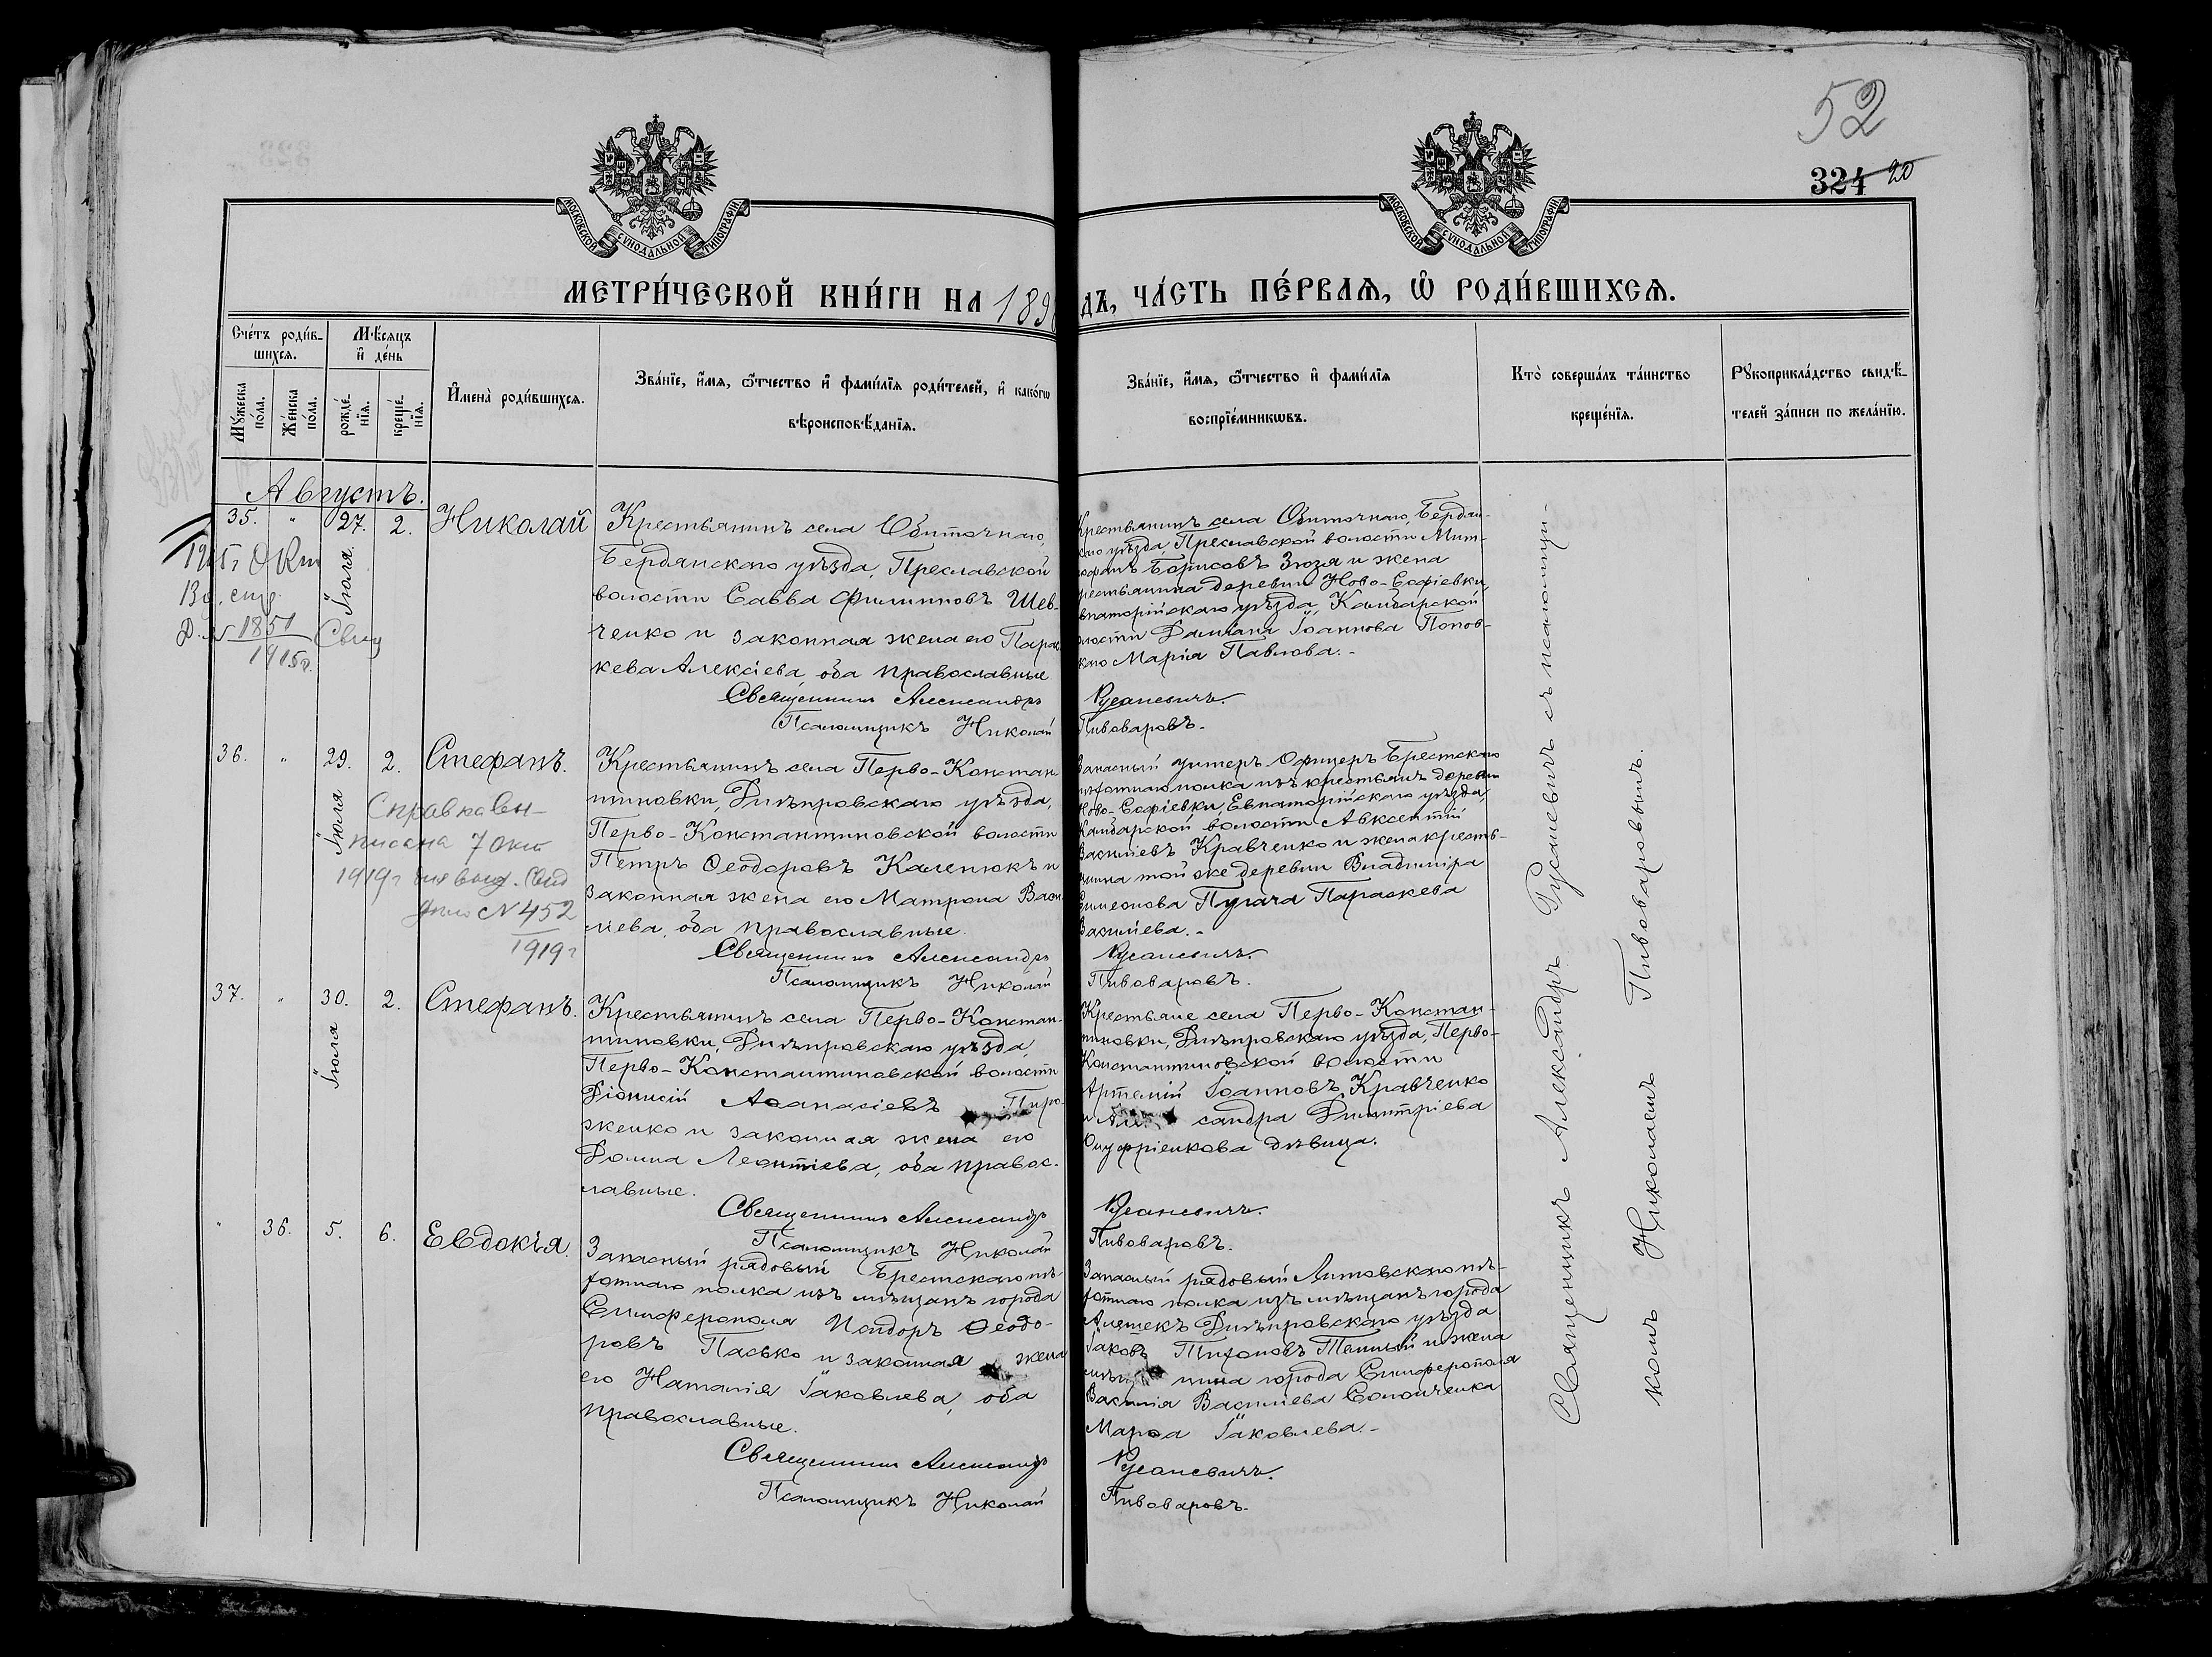 52
324 20
МОСКОВСКОЙ СѴНОДАЛЬНОЙ ТИПОГРАФІИ
МОСКОВСКОЙ СѴНОДАЛЬНОЙ ТИПОГРАФІИ
МЕТРИ́ЧЕСКОЙ КНИ́ГИ НА 189
ДЪ, ЧА́СТЬ ПЕ́РВАѦ, Ѡ РОДИ́ВШИХСѦ.
Сче́тъ роди́в-
шихсѧ.
Мѣ́сѧцъ
и҆ де́нь
Мꙋ́жеска
по́ла.
Же́нска
по́ла.
рожде́-
нїѧ.
креще́-
нїѧ.
И҆мена̀ роди́вшихсѧ.
Зва́нїе, и҆́мѧ, ѻ҆́тчество и҆ фами́лїѧ роди́телей, и҆ како́гѡ
вѣроисповѣ́данїѧ.
Зва́нїе, и҆́мѧ, ѻ҆́тчество и҆ фами́лїѧ
воспрїе́мникѡвъ.
Кто̀ соверша́лъ та́инство
креще́нїѧ.
Рꙋкоприкла́дство свидѣ́-
телей за́писи по жела́нїю.
Августъ.
35. " 27. 2. Николай
Іюля.
Крестьянинъ села Обиточнаго,
Бердянскаго уѣзда, Преславской
волости Савва Филипповъ Шев-
ченко и законная жена его Парас
кева Алексіева, оба православные
Священникъ Александръ
Псаломщикъ Николай
Крестьянинъ села Обиточнаго, Бердян-
скаго уѣзда, Преславской волости Мит-
рофанъ Борисовъ Зюзя и жена
крестьянина деревни Ново-Софіевки,
Евпаторійскаго уѣзда, Камбарской
волости Даміана Іоаннова Попов-
скаго Марія Павлова.-
Русаневичъ.
Пивоваровъ.
Д. № 1851
1915г.
36. " 29. 2. Стефанъ.
Іюля
Справка вы-
писана 7 окт
1919г для выд. Свид
Дело № 452
1919г
Крестьянинъ села Перво-Констан
тиновки, Днѣпровскаго уѣзда,
Перво-Константиновской волости
Петръ Ѳеодоровъ Каленюкъ и
законная жена его Матрона Васи
лiева, оба православные.
Священникъ Александръ
Псаломщикъ Николай
Запасный унтеръ Офицеръ Брестскаго
пѣхотнаго полка изъ крестьянъ деревни
Ново-Софіевки, Евпаторійскаго уѣзда,
Камбарской волости Авксентій
Василіевъ Кравченко и жена кресть-
янина той же деревни Владиміра
Симеонова Пугача Параскева
Василіева.-
Русаневичъ.
Пивоваровъ.
37. " 30. 2. Стефанъ.
Іюля
Крестьянинъ села Перво-Констан-
тиновки, Днѣпровскаго уѣзда,
Перво-Константиновской волости
Діонисій Аѳанасіевъ Пиро-
женко и законная жена его
Домна Леонтіева, оба правос-
лавные.
Священникъ Александръ
Псаломщикъ Николай
Крестьяне села Перво-Констан-
тиновки, Днѣпровскаго уѣзда, Перво-
Константиновской волости
Артемій Іоанновъ Кравченко
и Алек сандра Димитріева
Онуфріенкова дѣвица.
Русаневичъ.
Пивоваровъ.
" 36. 5. 6. Евдокія.
Запасный рядовый Брестскаго пѣ-
хотнаго полка изъ мѣщанъ города
Симферополя Исидоръ Ѳеодо-
ровъ Пасько и законная жена
его Наталія Іаковлева, оба
православные.
Священникъ Александръ
Псаломщикъ Николай
Запасный рядовый Литовскаго пѣ-
хотнаго полка изъ мѣщанъ города
Алешекъ Днѣпровскаго уѣзда
Іаковъ Тихоновъ Темный и жена
мѣща нина города Симферополя
Василія Василіева Солонченка
Марѳа Іаковлева.-
Русаневичъ.
Пивоваровъ.
Священникъ Александръ Русаневичъ съ псаломщи-
комъ Николаемъ Пивоваровымъ.